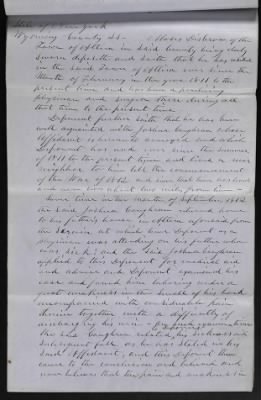 State of New York
Wyoming County SS. Moses Disbrow of the
Town of Attica in said County being duly
sworn deposeth and saith that he has resided
in the said Town of Attica ever since the
Month of February in the year 1811 to the
present time and has been a practising
physician and surgeon there during all
that time to the present time
Deponent further saith that he has been
well acquainted with Joshua Baughman whose
Affidavit is hereunto annexed and which
Deponent has read ever since the summer
of 1811 to the present time and lived a near
neighbor to him till the commencement
of the War of 1812 and since that
and now lives about two miles from him
Some time in the month of September 1812
the said Joshua Baughman returned home
to his father's house in Attica aforesaid from
the service at which time Deponent as a
physician was attending on his father who
was sick; and the said Joshua Baughman
applied to this Deponent for medical aid
and advice and Deponent examined his
case and found him laboring under a
great weakness in the small of his back
accompanied with considerable pain
therein together with a difficulty of
discharging his urine
the said Baughman related his sickness and
subsequent fall as he has stated in his
said Affidavit, and this Deponent then
came to the conclusion and believed and
now believes that the pain and weakness in